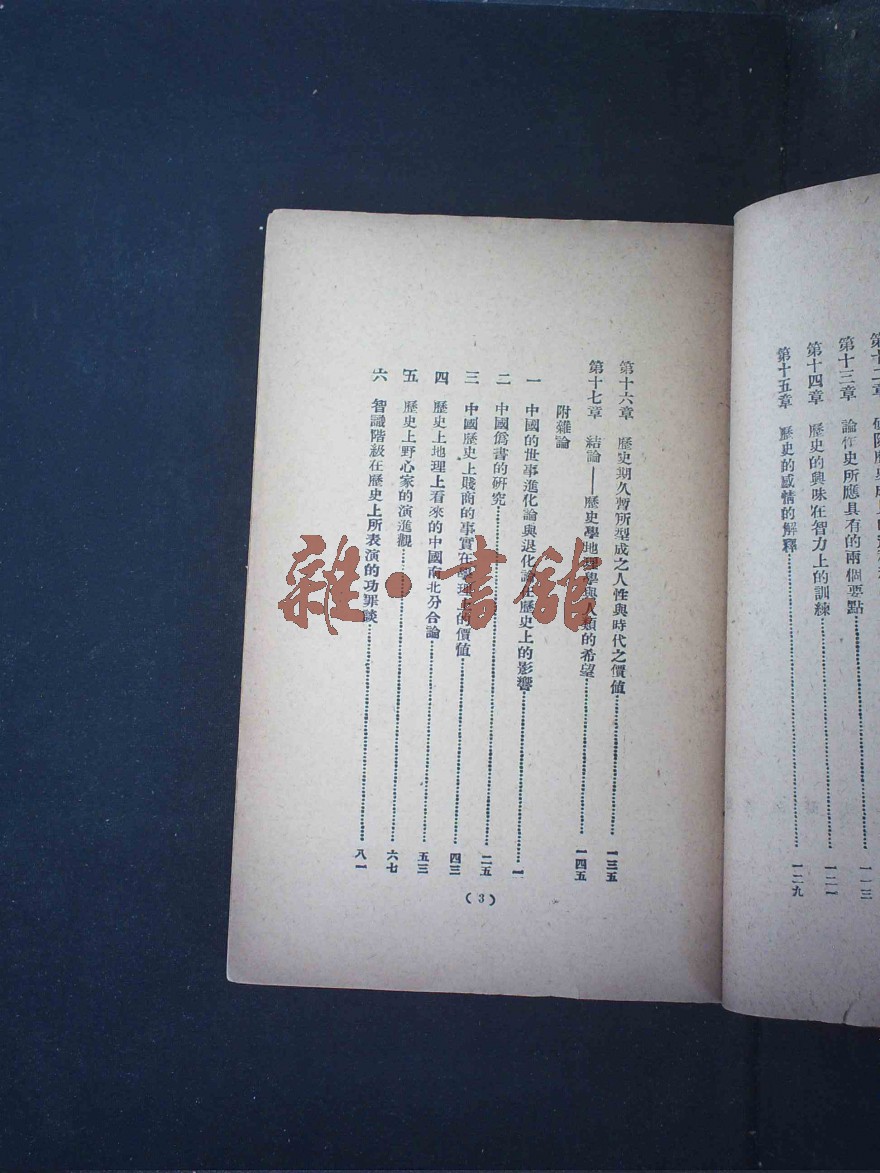 第十三章　論作史所應具有的兩個要點………一一三
第十四章　歷史的興味在智力上的訓練………一二一
第十五章　歷史的感情的解釋………一二九
第十六章　歷史期久暫所型成之人性與時代之價値………一三五
第十七章　結論——歷史學地理學與人類的希望………一四五
附雜論
一　中國的世事進化論與退化論在歷史上的影響………一
二　中國僞書的硏究………二五
三　中國歷史上賤商的事實在學理上的價値………四三
四　歷史上地理上看來的中國南北分合論………五三
五　歷史上野心家的演進觀………六七
六　智識階級在歷史上所表演的功罪談………八一
(3)
雜·書館